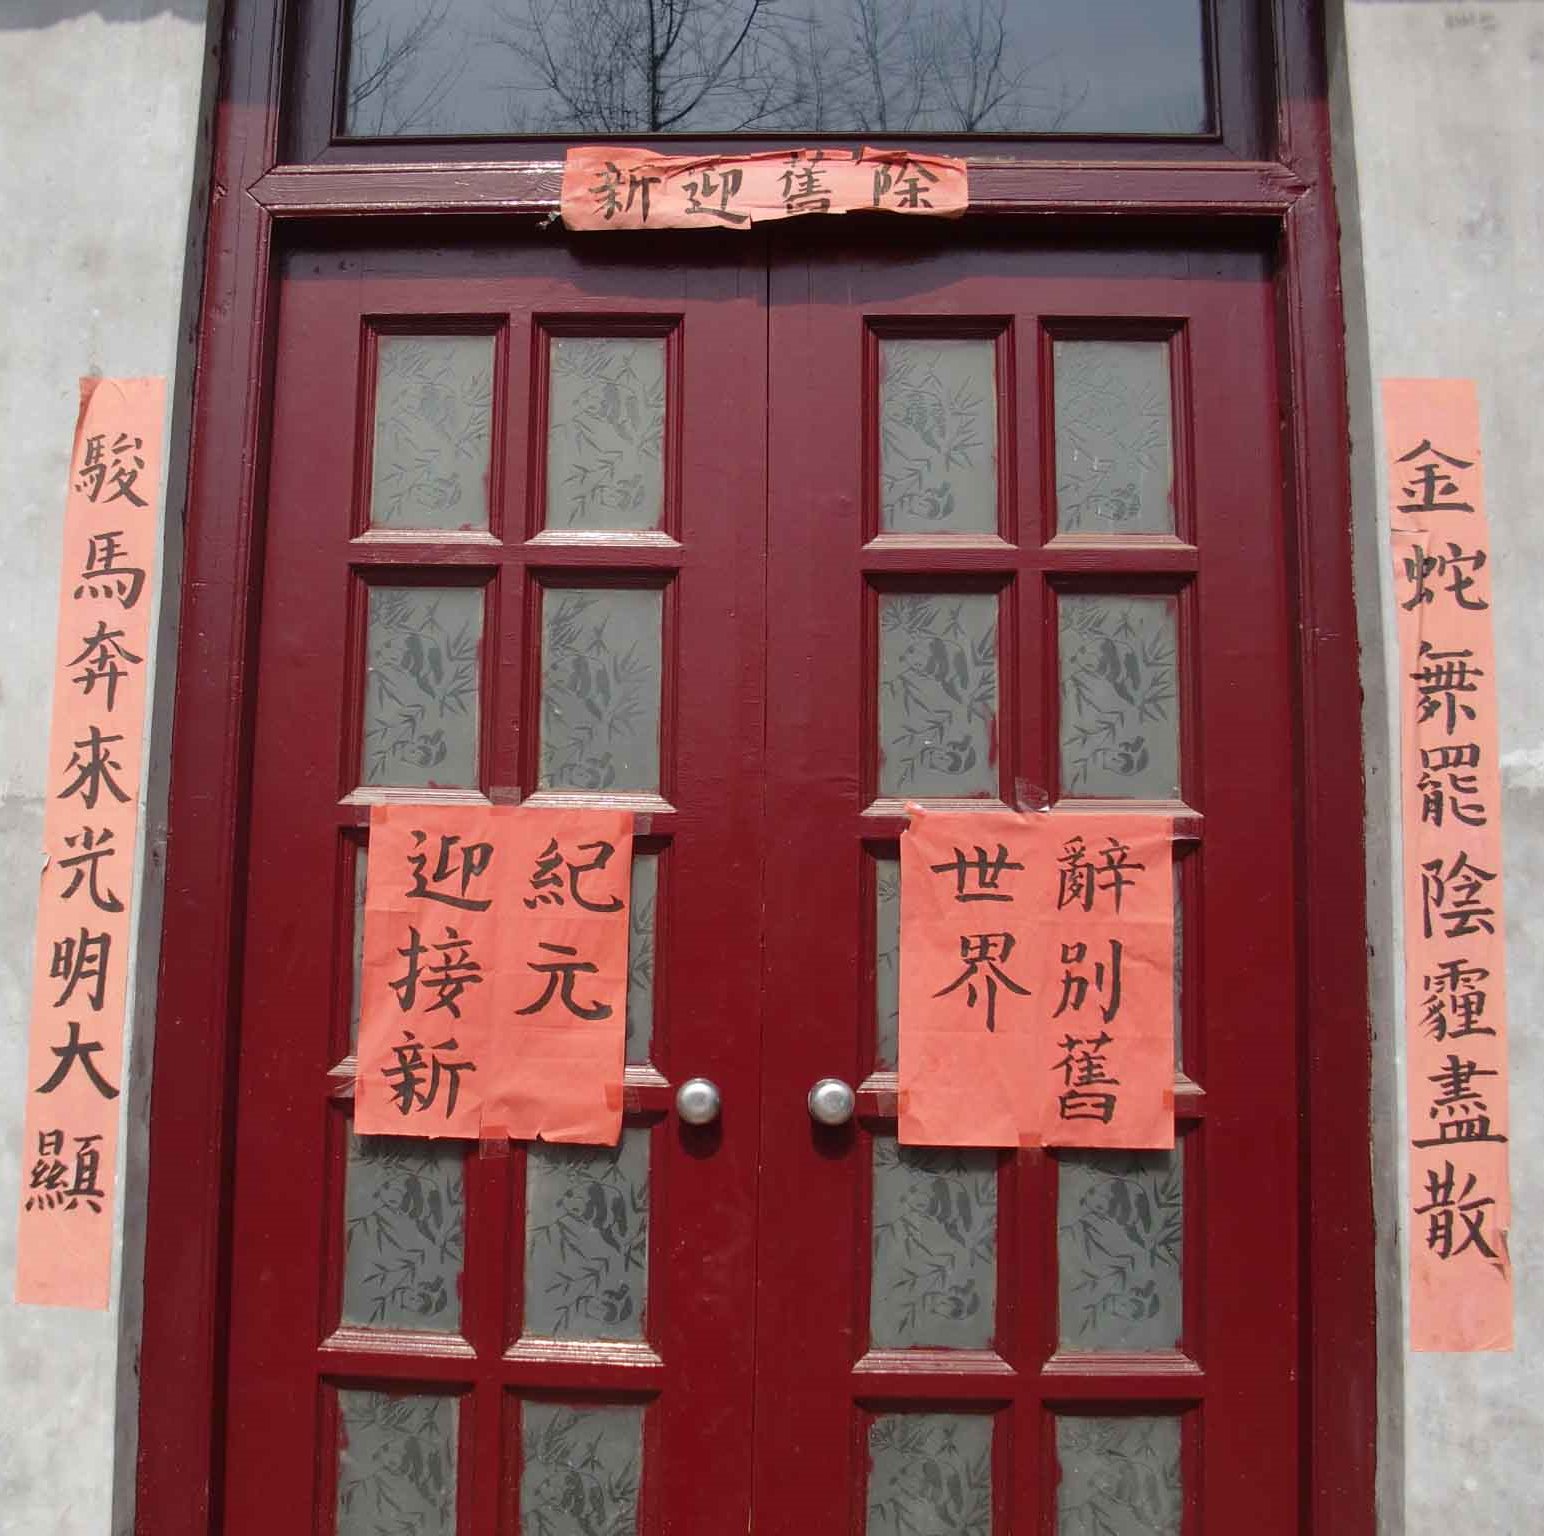 除舊迎新
金蛇舞罷陰霾盡散
駿馬奔來光明大顯
辭別舊
世界
迎接新
紀元